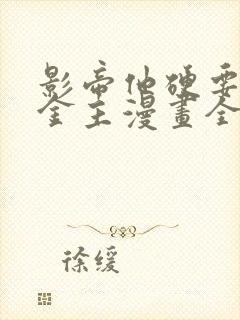 影帝他硬要
金主漫畫全
徐缓